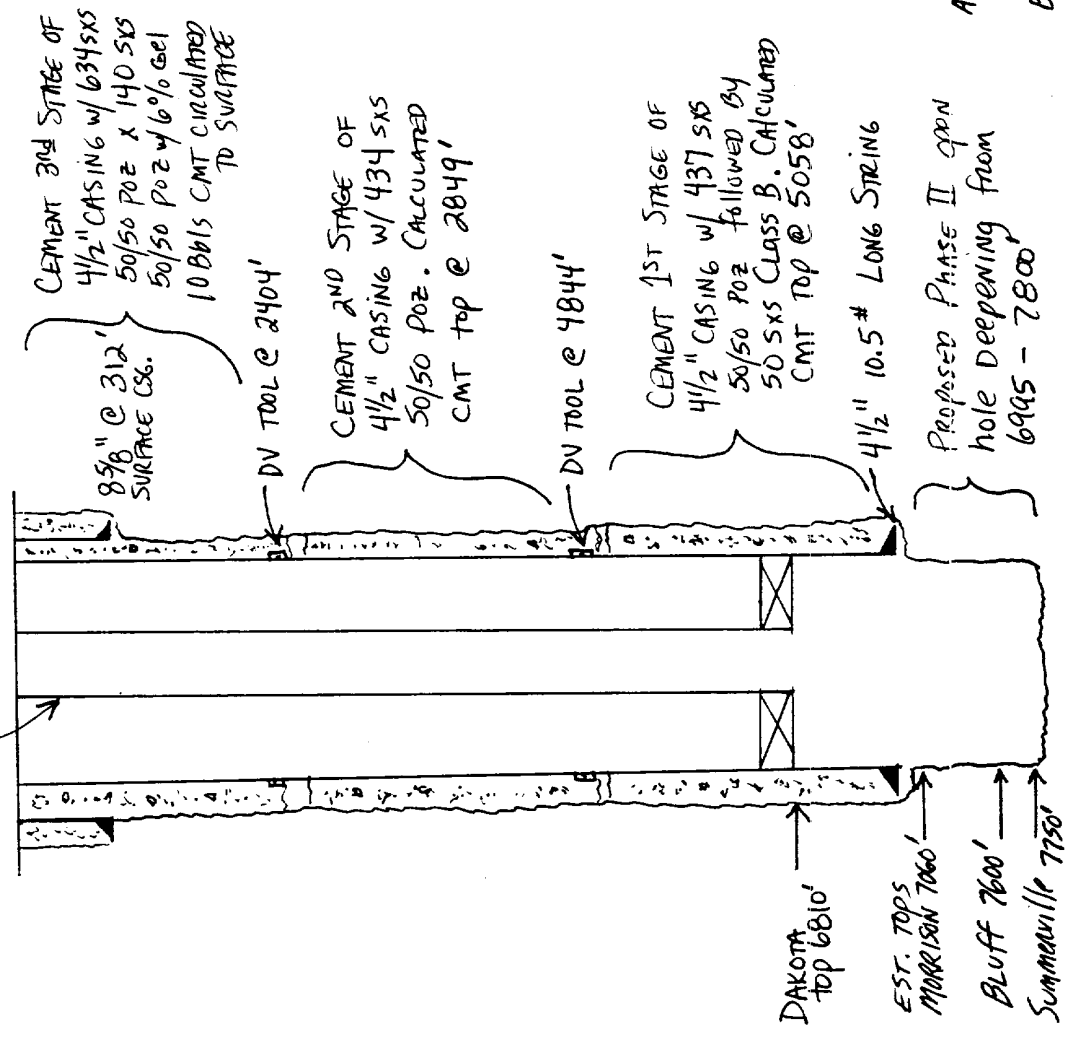 CEMENT 3rd STAGE OF
4 1/2" CASING w/ 634 sxs
50/50 POZ x 140 sxs
50/50 POZ w/ 6% Gel
10 Bbls CMT CIRCULATED
TO SURFACE
8 5/8" @ 312'
SURFACE CSG.
DV TOOL @ 2404'
CEMENT 2ND STAGE OF
4 1/2" CASING w/ 434 sxs
50/50 POZ. CALCULATED
CMT top @ 2849'
DV TOOL @ 4844'
CEMENT 1ST STAGE OF
4 1/2" CASING w/ 437 sxs
50/50 POZ followed By
50 sxs Class B. CAlCULATED
CMT TOP @ 5058'
4 1/2" 10.5# LONG STRING
PROPOSED PHASE II open
hole Deepening from
6995 - 7800'
DAKOTA
top 6810'
EST. TOPS
MORRISON 7060'
BLUFF 7600'
Summerville 7750'
A